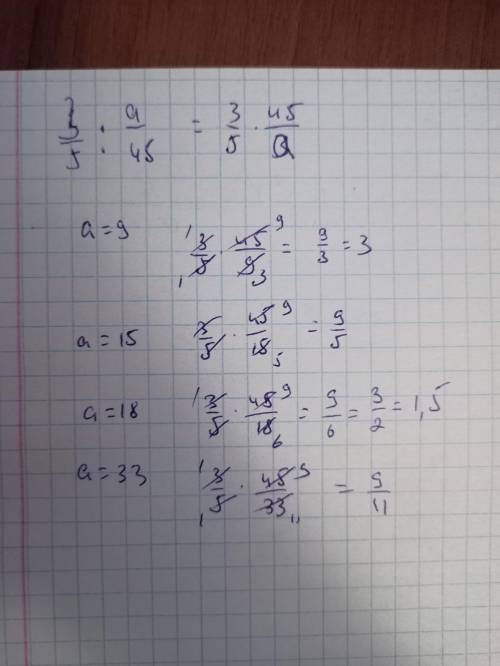 3/5 : a/45 = 3/5 · 45/a
a=9 3/5 · 45/9 = 9/3 = 3
a=15 3/5 · 45/15 = 9/5
a=18 3/5 · 45/18 = 9/6 = 3/2 = 1,5
a=33 3/5 · 45/33 = 9/11